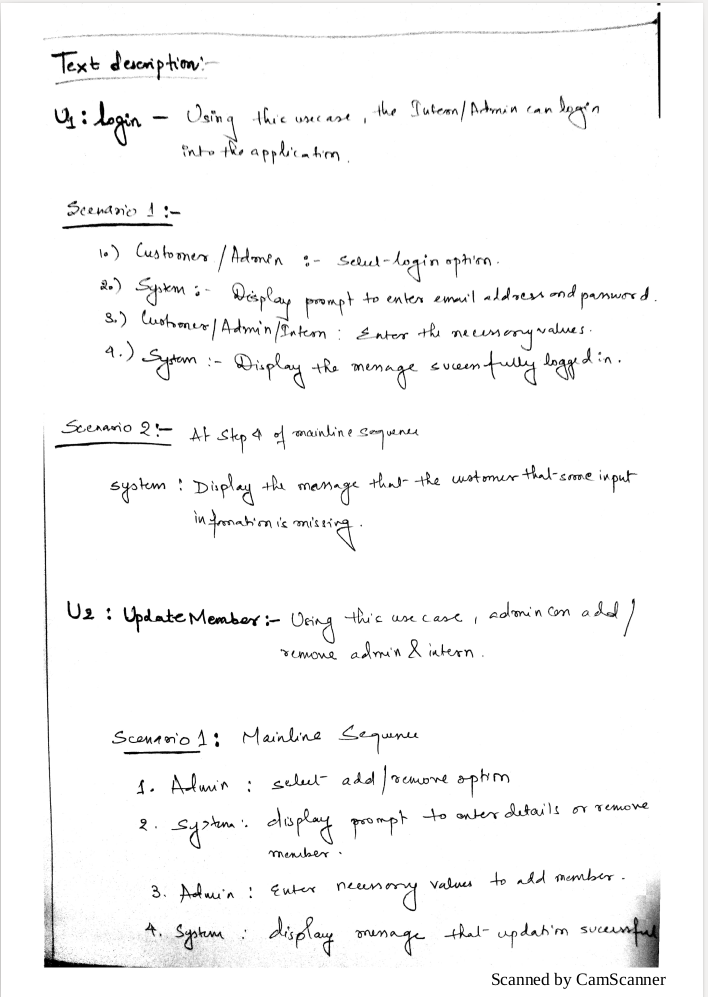 Text description:-
U1 : login - Using this usecase, the Intern/Admin can login
into the application.
Scenario 1 :-
1.) Customer / Admin :- select login option.
2.) System :- Display prompt to enter email address and password.
3.) Customer/Admin/Intern : Enter the necessary values.
4.) System :- Display the message sucessfully logged in.
Scenario 2 :- At step 4 of mainline sequence
system : Display the message that the customer that some input
information is missing.
U2 : Update Member :- Using this use case, admin can add /
remove admin & intern.
Scenario 1 : Mainline Sequence
1. Admin : select add / remove option
2. System : display prompt to enter details or remove
member.
3. Admin : Enter necessary values to add member.
4. System : display message that updation sucessful
Scanned by CamScanner